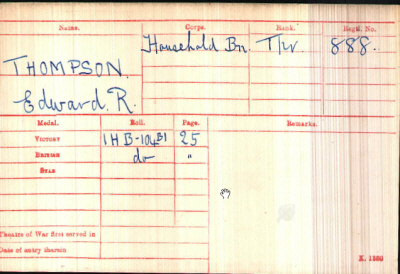 Name. Corps. Rank. Regtl. No.
THOMPSON. Household Bn. T/w 888.
Edward. R.
Medal. Roll. Page. Remarks.
VICTORY 1HB-104B1 25
BRITISH do "
STAR
Theatre of War first served in
Date of entry therein
K. 1380